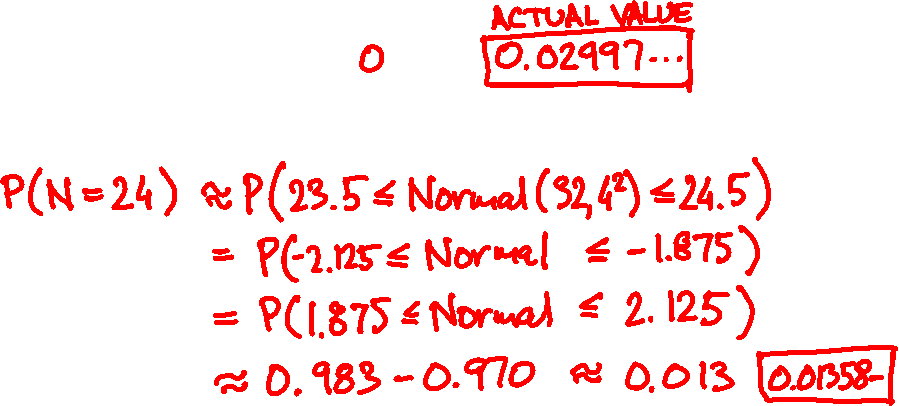 ACTUAL VALUE
0 0.02997...
P(N=24) ≈ P(23.5 ≤ Normal(32,4²) ≤ 24.5)
= P(-2.125 ≤ Normal ≤ -1.875)
= P(1.875 ≤ Normal ≤ 2.125)
≈ 0.983 - 0.970 ≈ 0.013 0.01358-